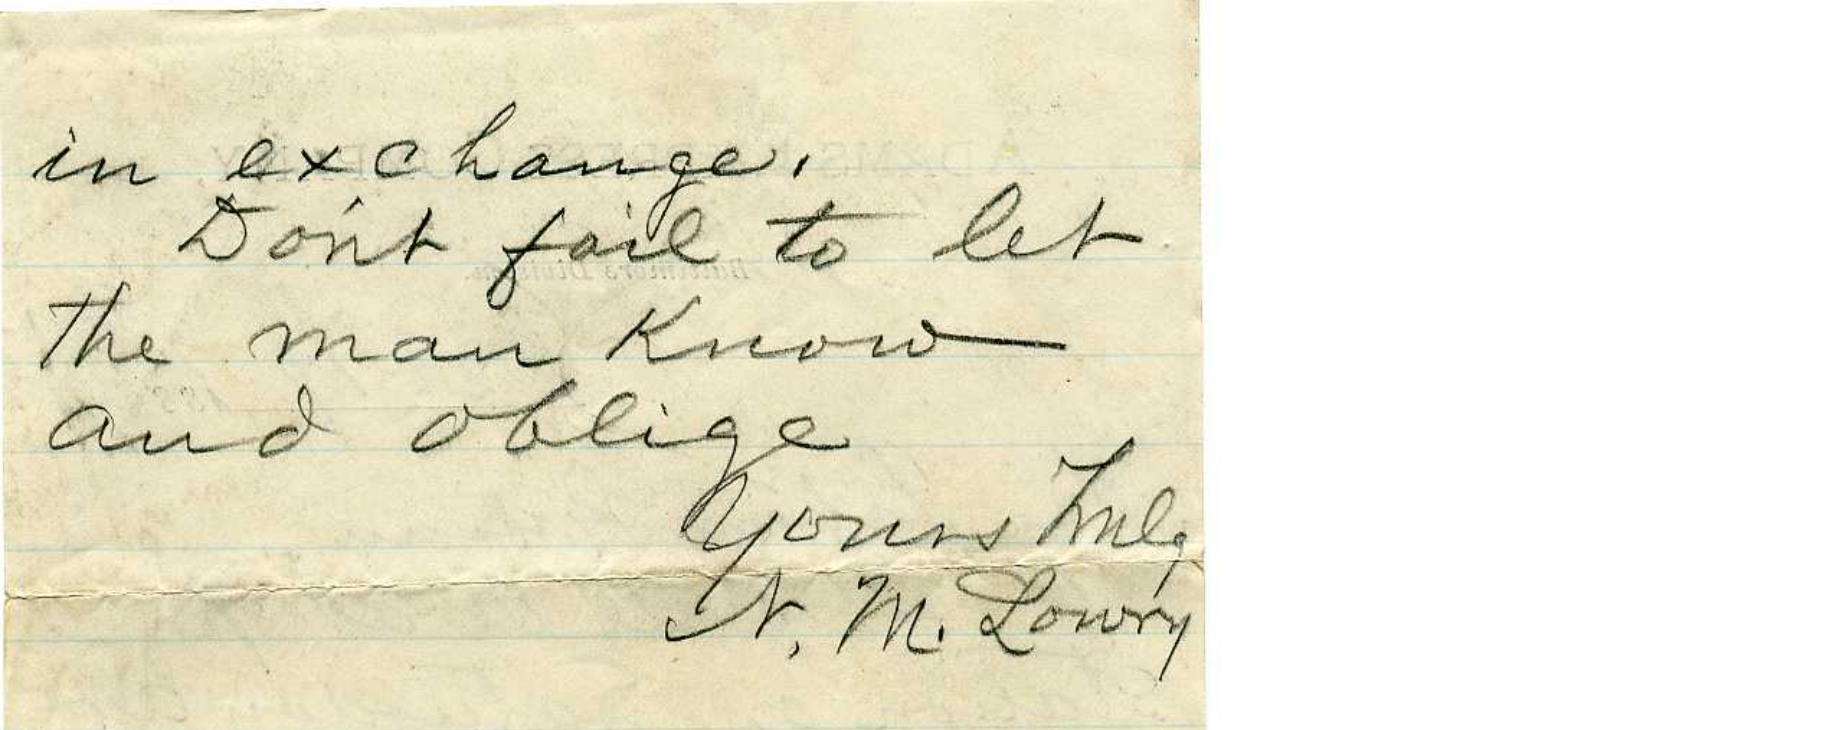 in exchange.
Don't fail to let
the man Know
and oblige
Yours Truly
N. M. Lowry